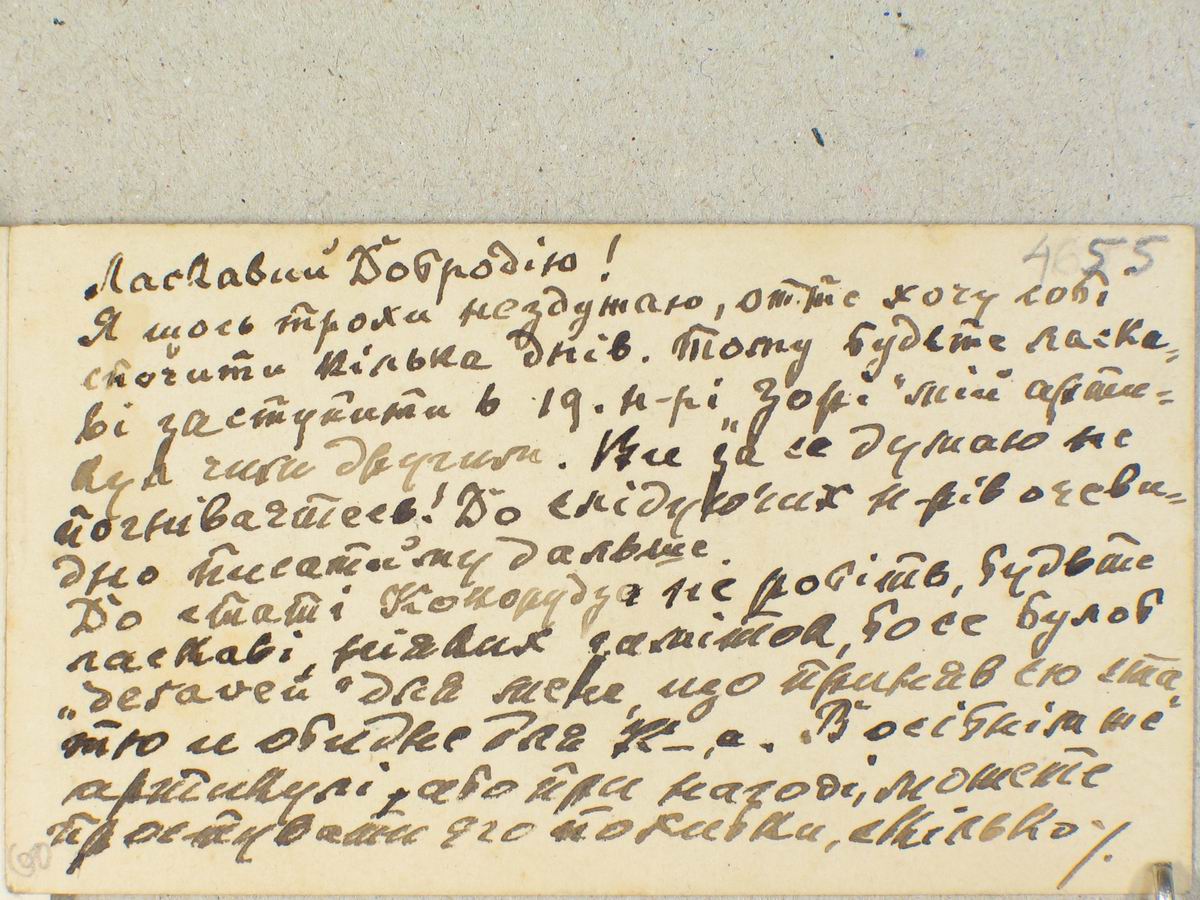 4655
Ласкавий Добродію!
Я щось трохи нездужаю, отже хочу собі
спочити кілька днів. Тому будьте ласка-
ві заступити в 19. н-рі „Зорі" мій арти-
кул чим другим. Ви за се думаю не
погніваєтесь! До слідуючих н-рів очеви-
дно писатиму дальше.
До статі Кокорудза не робіть, будьте
ласкаві, ніяких заміток, бо се булоб
„desaveu" для мене, що приняв сю ста-
тю и обидне для К-а. В осібнім же
артикулі, або при нагоді, можете
простувати єго похибки, скілько